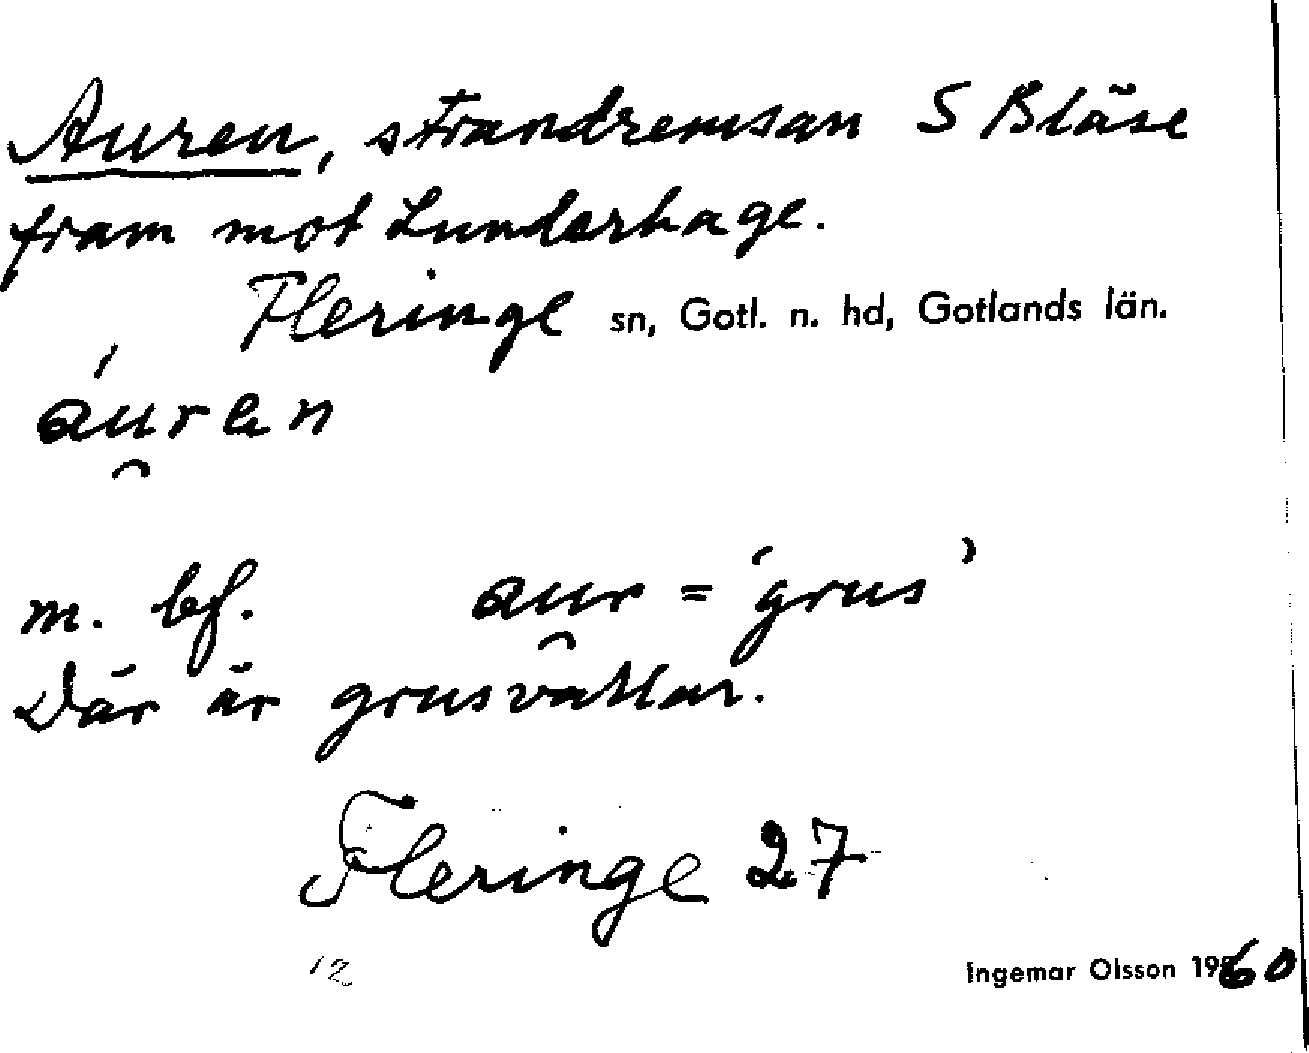 Auren, strandremsan S Bläse
fram mot Lunderhage.
Fleringe sn, Gotl. n. hd, Gotlands län.
áu̯ren
m. bf. au̯r = 'grus'
Där är grusvallar.
Fleringe 27
12
Ingemar Olsson 1960